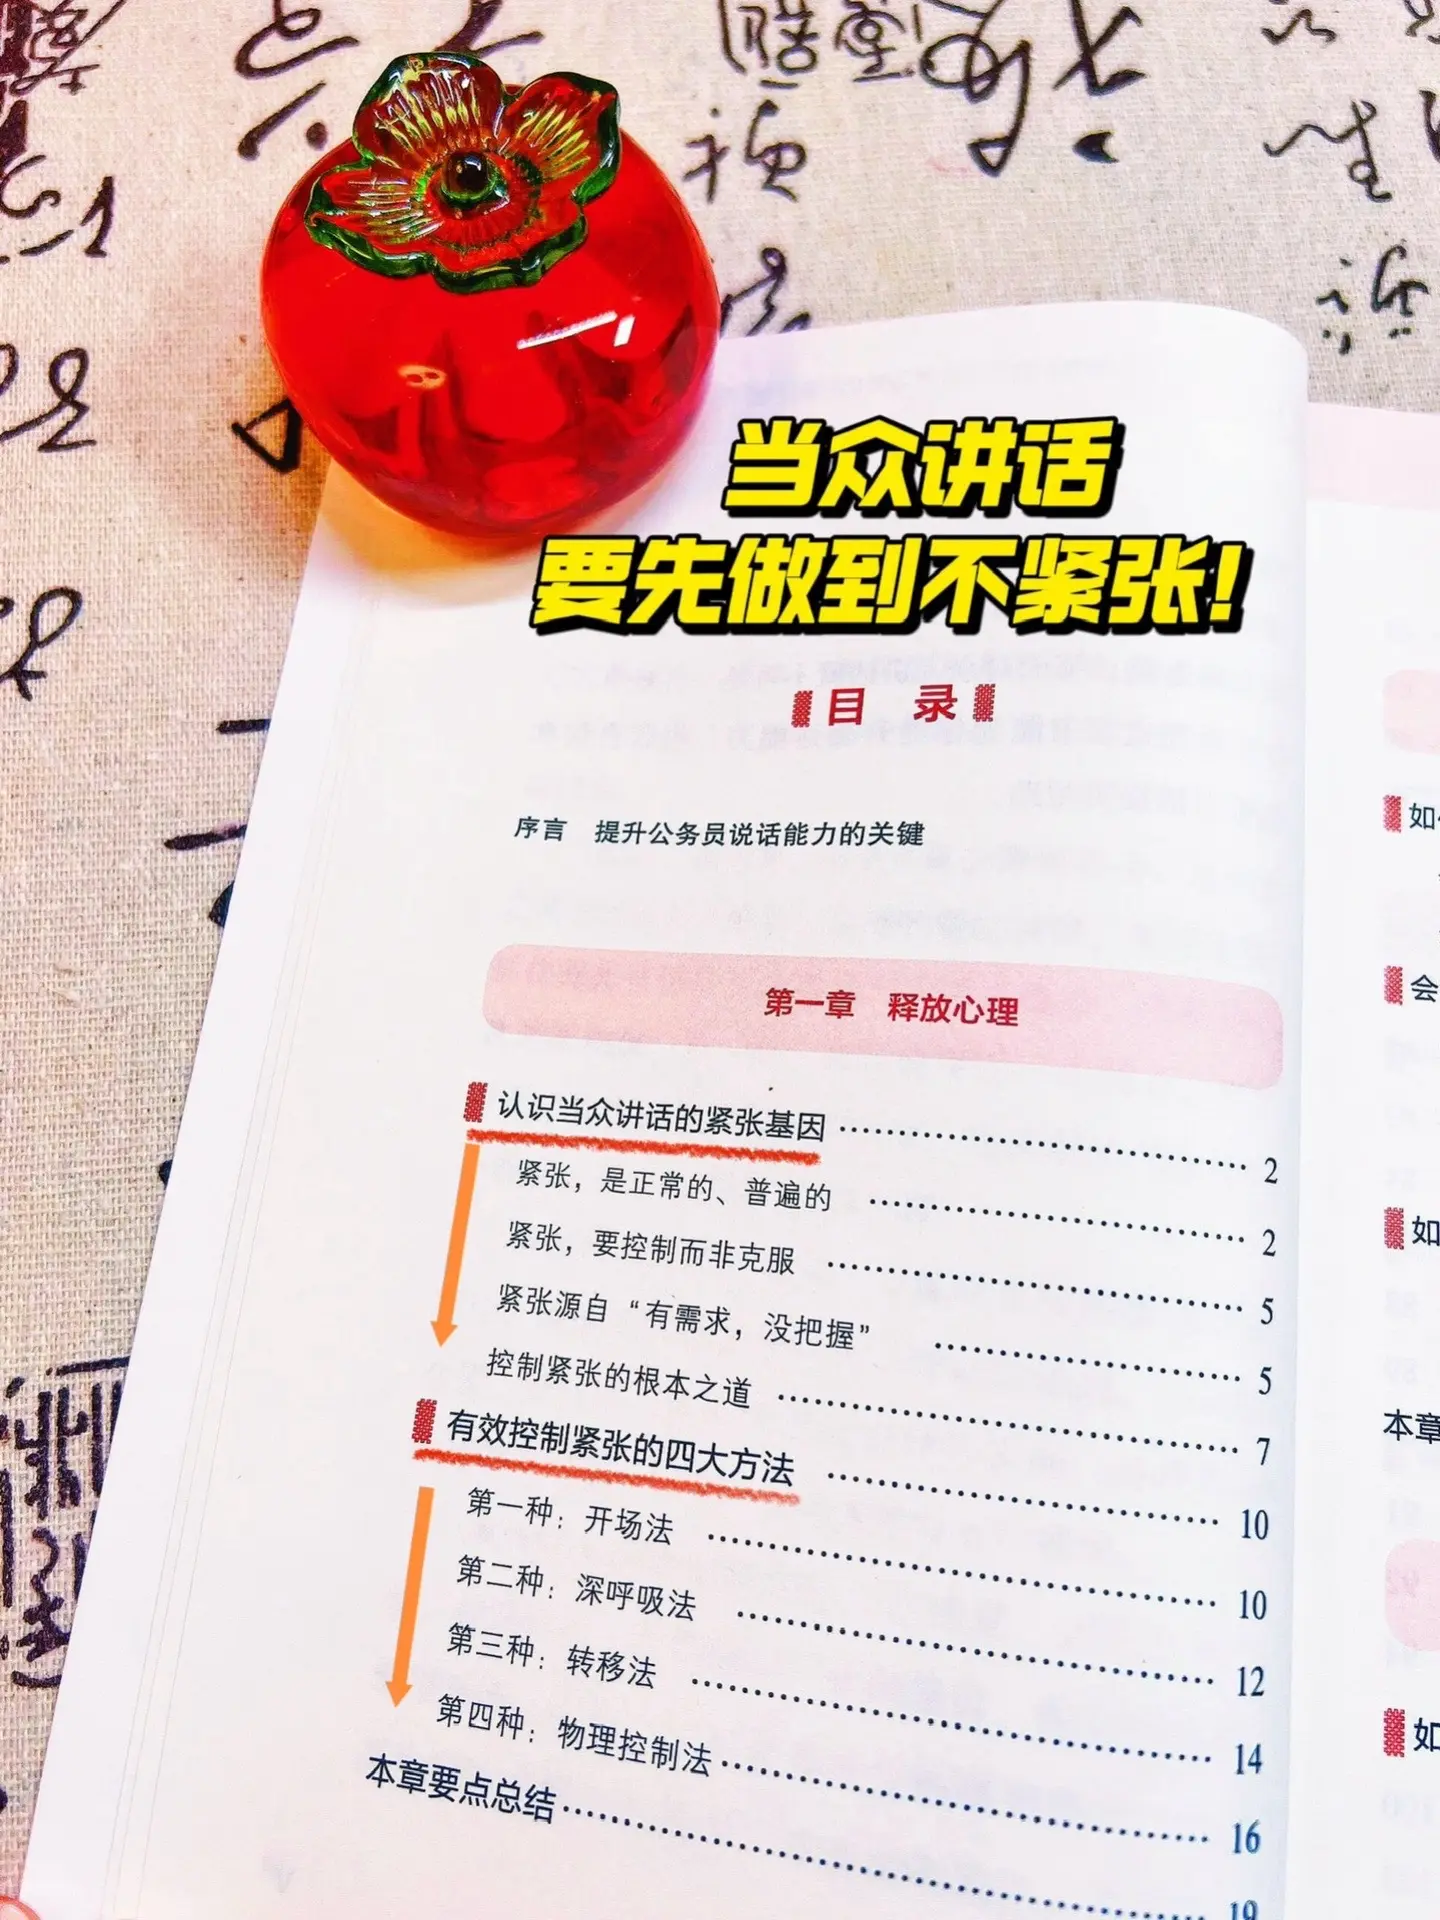 当众讲话
要先做到不紧张！
目 录
序言 提升公务员说话能力的关键
第一章 释放心理
认识当众讲话的紧张基因 2
紧张，是正常的、普遍的 2
紧张，要控制而非克服 5
紧张源自“有需求，没把握” 5
控制紧张的根本之道 7
有效控制紧张的四大方法 10
第一种：开场法 10
第二种：深呼吸法 12
第三种：转移法 14
第四种：物理控制法 16
本章要点总结 19
如
会
如
本章
如